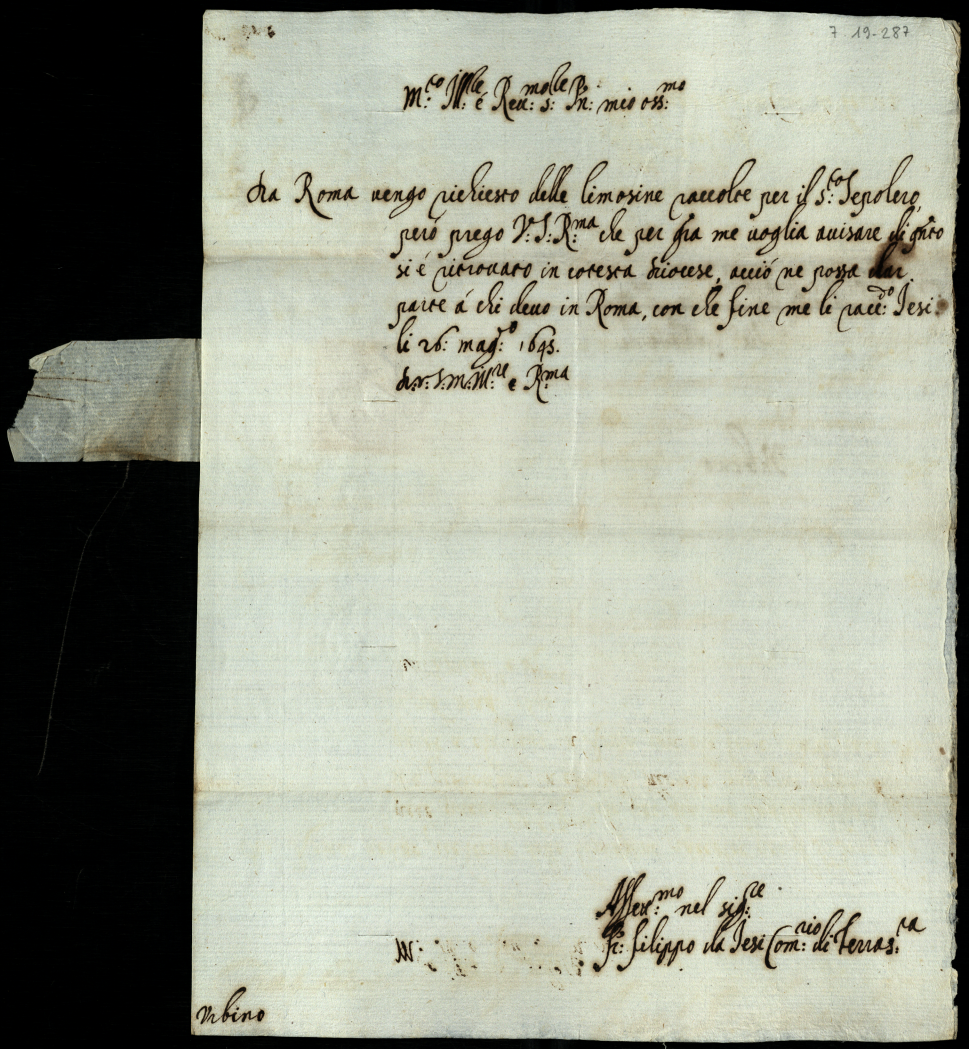 7 19-287
M:co Ill:re é Reu:mo s:r Pn: mio oss:mo
Da Roma uengo richiesto delle limosine raccolte per il S:to Sepolcro,
peró prego V: S: R:ma che per gra me uoglia auisare di qnto
si é ritrouato in cotesta diocese, acció ne possa dar
parte á chi deuo in Roma, con che fine me li racc:do Iesi
li 26: mag:o 1645.
D. V: S. M. Ill:re e R:ma
Affett:mo nel sig:re
fr: filippo da Iesi Com:rio di Terra s:ta
M:
Vrbino